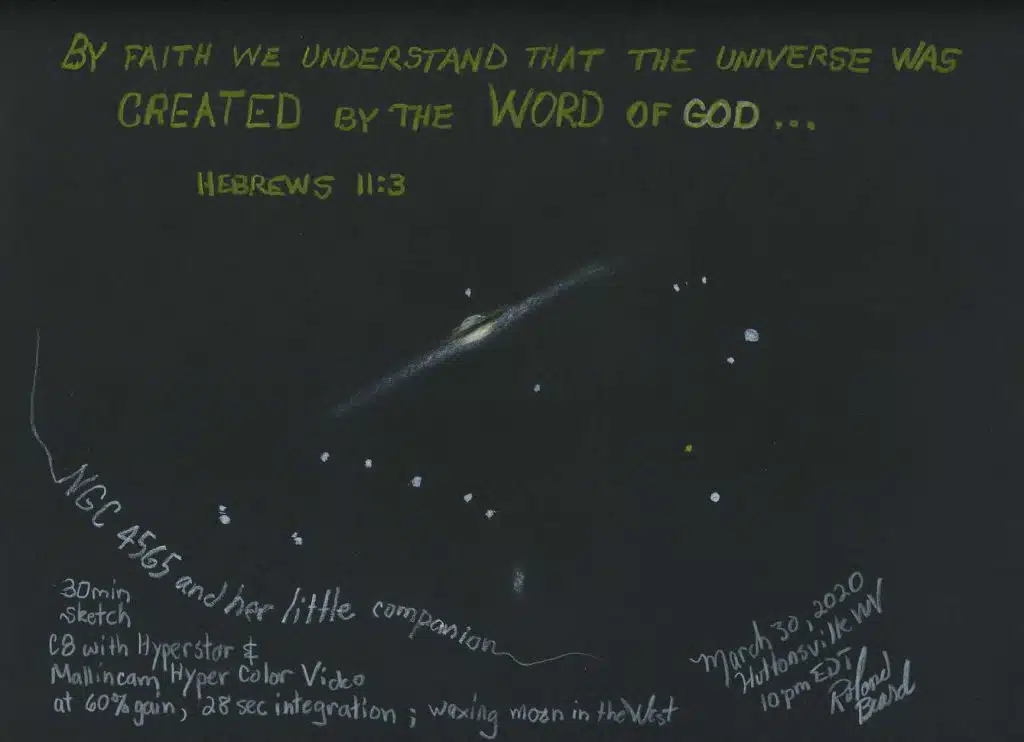 BY FAITH WE UNDERSTAND THAT THE UNIVERSE WAS
CREATED BY THE WORD OF GOD ...
HEBREWS 11:3
NGC 4565 and her little companion
30min
sketch
C8 with Hyperstar &
Mallincam Hyper Color Video
at 60% gain, 28 sec integration ; waxing moon in the West
March 30, 2020
Huttonsville WV
10 pm EDT
Roland
Beard